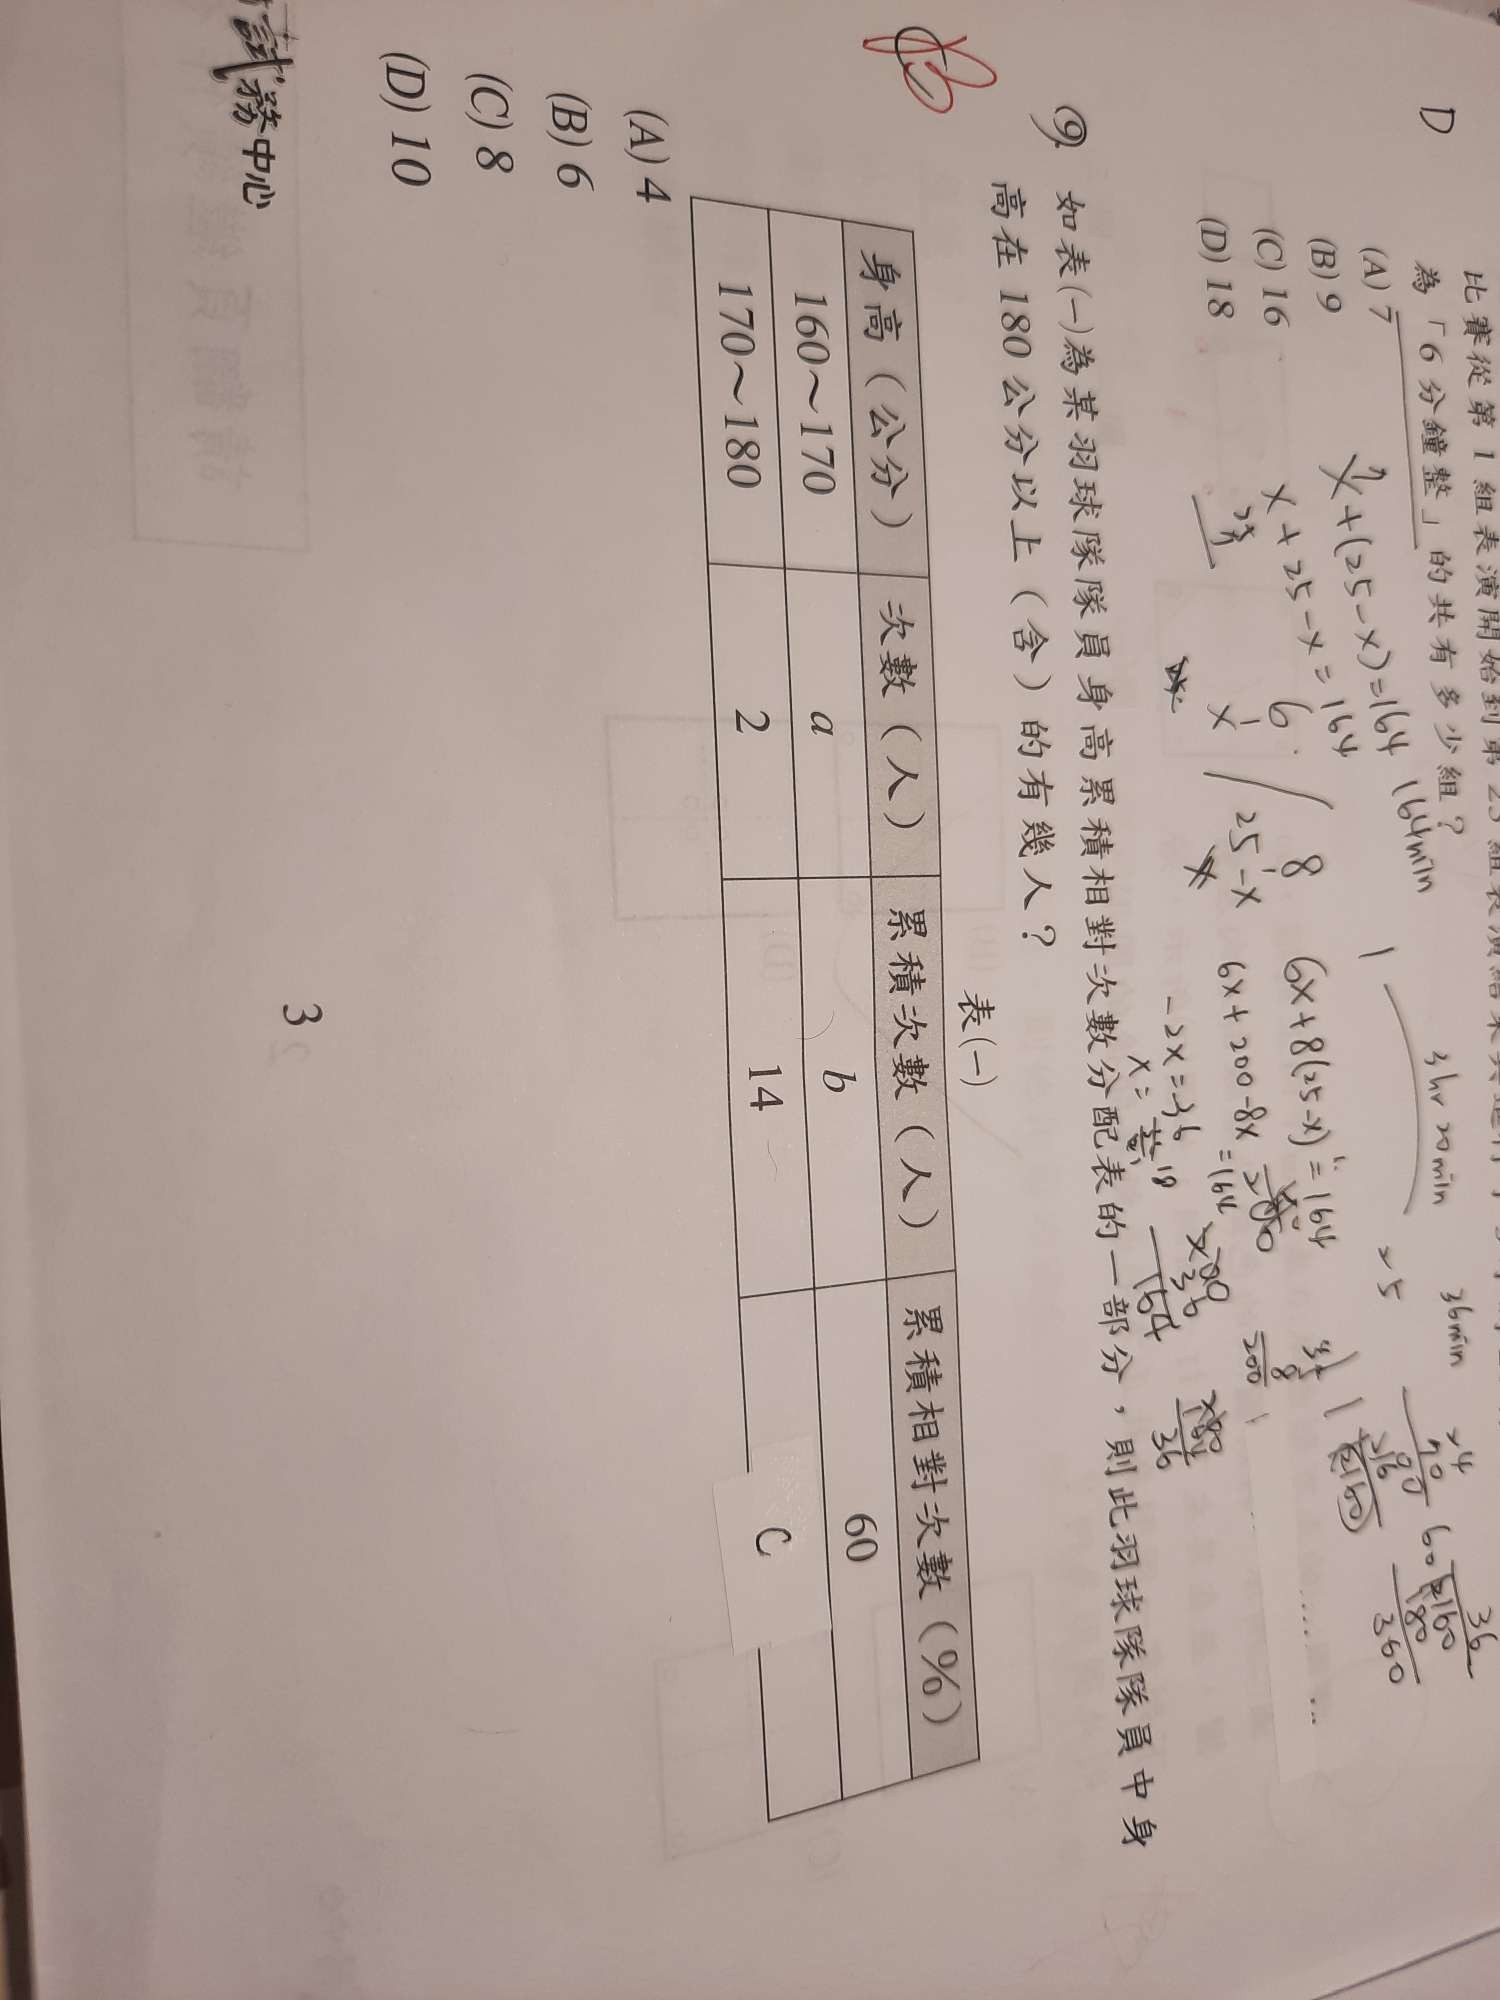 比賽從第 1 組表演開始到第 25 組表演結束共進行了
為「6 分鐘整」的共有多少組？
D
(A) 7
(B) 9
(C) 16
(D) 18
x+(25-x)=164
x+25-x=164
6
x
8
25-x
164min
1
3hr 20min
25
36min
6x+8(25-x)=164
6x+200-8x=164
-2x=-36
x=
18
200
36
164
8
200
36
24
90
00
216
60
36
2160
180
360
9. 如表(一)為某羽球隊隊員身高累積相對次數分配表的一部分，則此羽球隊隊員中身
高在 180 公分以上（含）的有幾人？
B
表(一)
身高（公分） 次數（人） 累積次數（人） 累積相對次數（%）
160～170 a b 60
170～180 2 14 C
(A) 4
(B) 6
(C) 8
(D) 10
試務中心
3